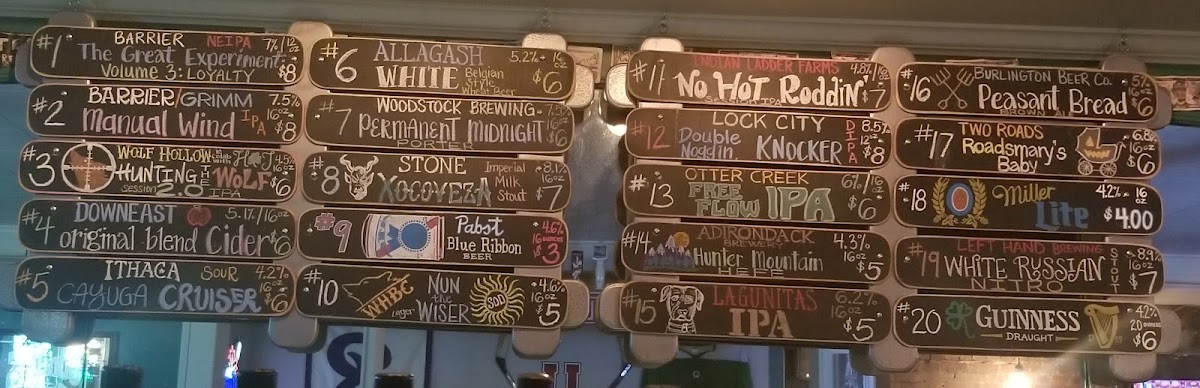 #1 BARRIER NEIPA 7%/12oz
The Great Experiment
Volume 3: LOYALTY $8
#2 BARRIER/GRIMM 7.5%
Manual Wind IPA 12oz $8
#3 WOLF HOLLOW 4.5%
HUNTING THE WOLF 16oz
session 2.0 IPA $6
#4 DOWNEAST 5.1%/16oz
original blend Cider $6
#5 ITHACA SOUR 4.2%
CAYUGA CRUISER 16oz $6
#6 ALLAGASH 5.2% 16oz
WHITE Belgian Style Wheat Beer $6
#7 WOODSTOCK BREWING
PERMANENT MIDNIGHT 16oz
PORTER $6
#8 STONE Imperial Milk Stout 8.1% 16oz
XOCOVEZA $7
#9 Pabst 4.6%
Blue Ribbon 16 OUNCES
BEER $3
#10 WHBC Lager NUN the WISER SOD 4.6% 16oz $5
#11 INDIAN LADDER FARMS 4.8%/16oz
No HoT Roddin' $7
SESSION IPA
#12 LOCK CITY DIPA 8.5%
Double Noggin KNOCKER 12oz $8
#13 OTTER CREEK 6%/16oz
FREE FLOW IPA $6
#14 ADIRONDACK 4.3%
BREWERY 16oz
Hunter Mountain $5
HEFE
#15 LAGUNITAS 6.2%
IPA 16oz $5
#16 BURLINGTON BEER Co. 5%
Peasant Bread 16oz
BROWN ALE $6
#17 TWO ROADS 6.8%
Roadsmary's 16oz
Baby $6
#18 Miller Lite 4.2% 16oz
$4.00
#19 LEFT HAND BREWING 8.9%
WHITE RUSSIAN STOUT 16oz
NITRO $7
#20 GUINNESS 4.2%
DRAUGHT 20 OUNCES $6